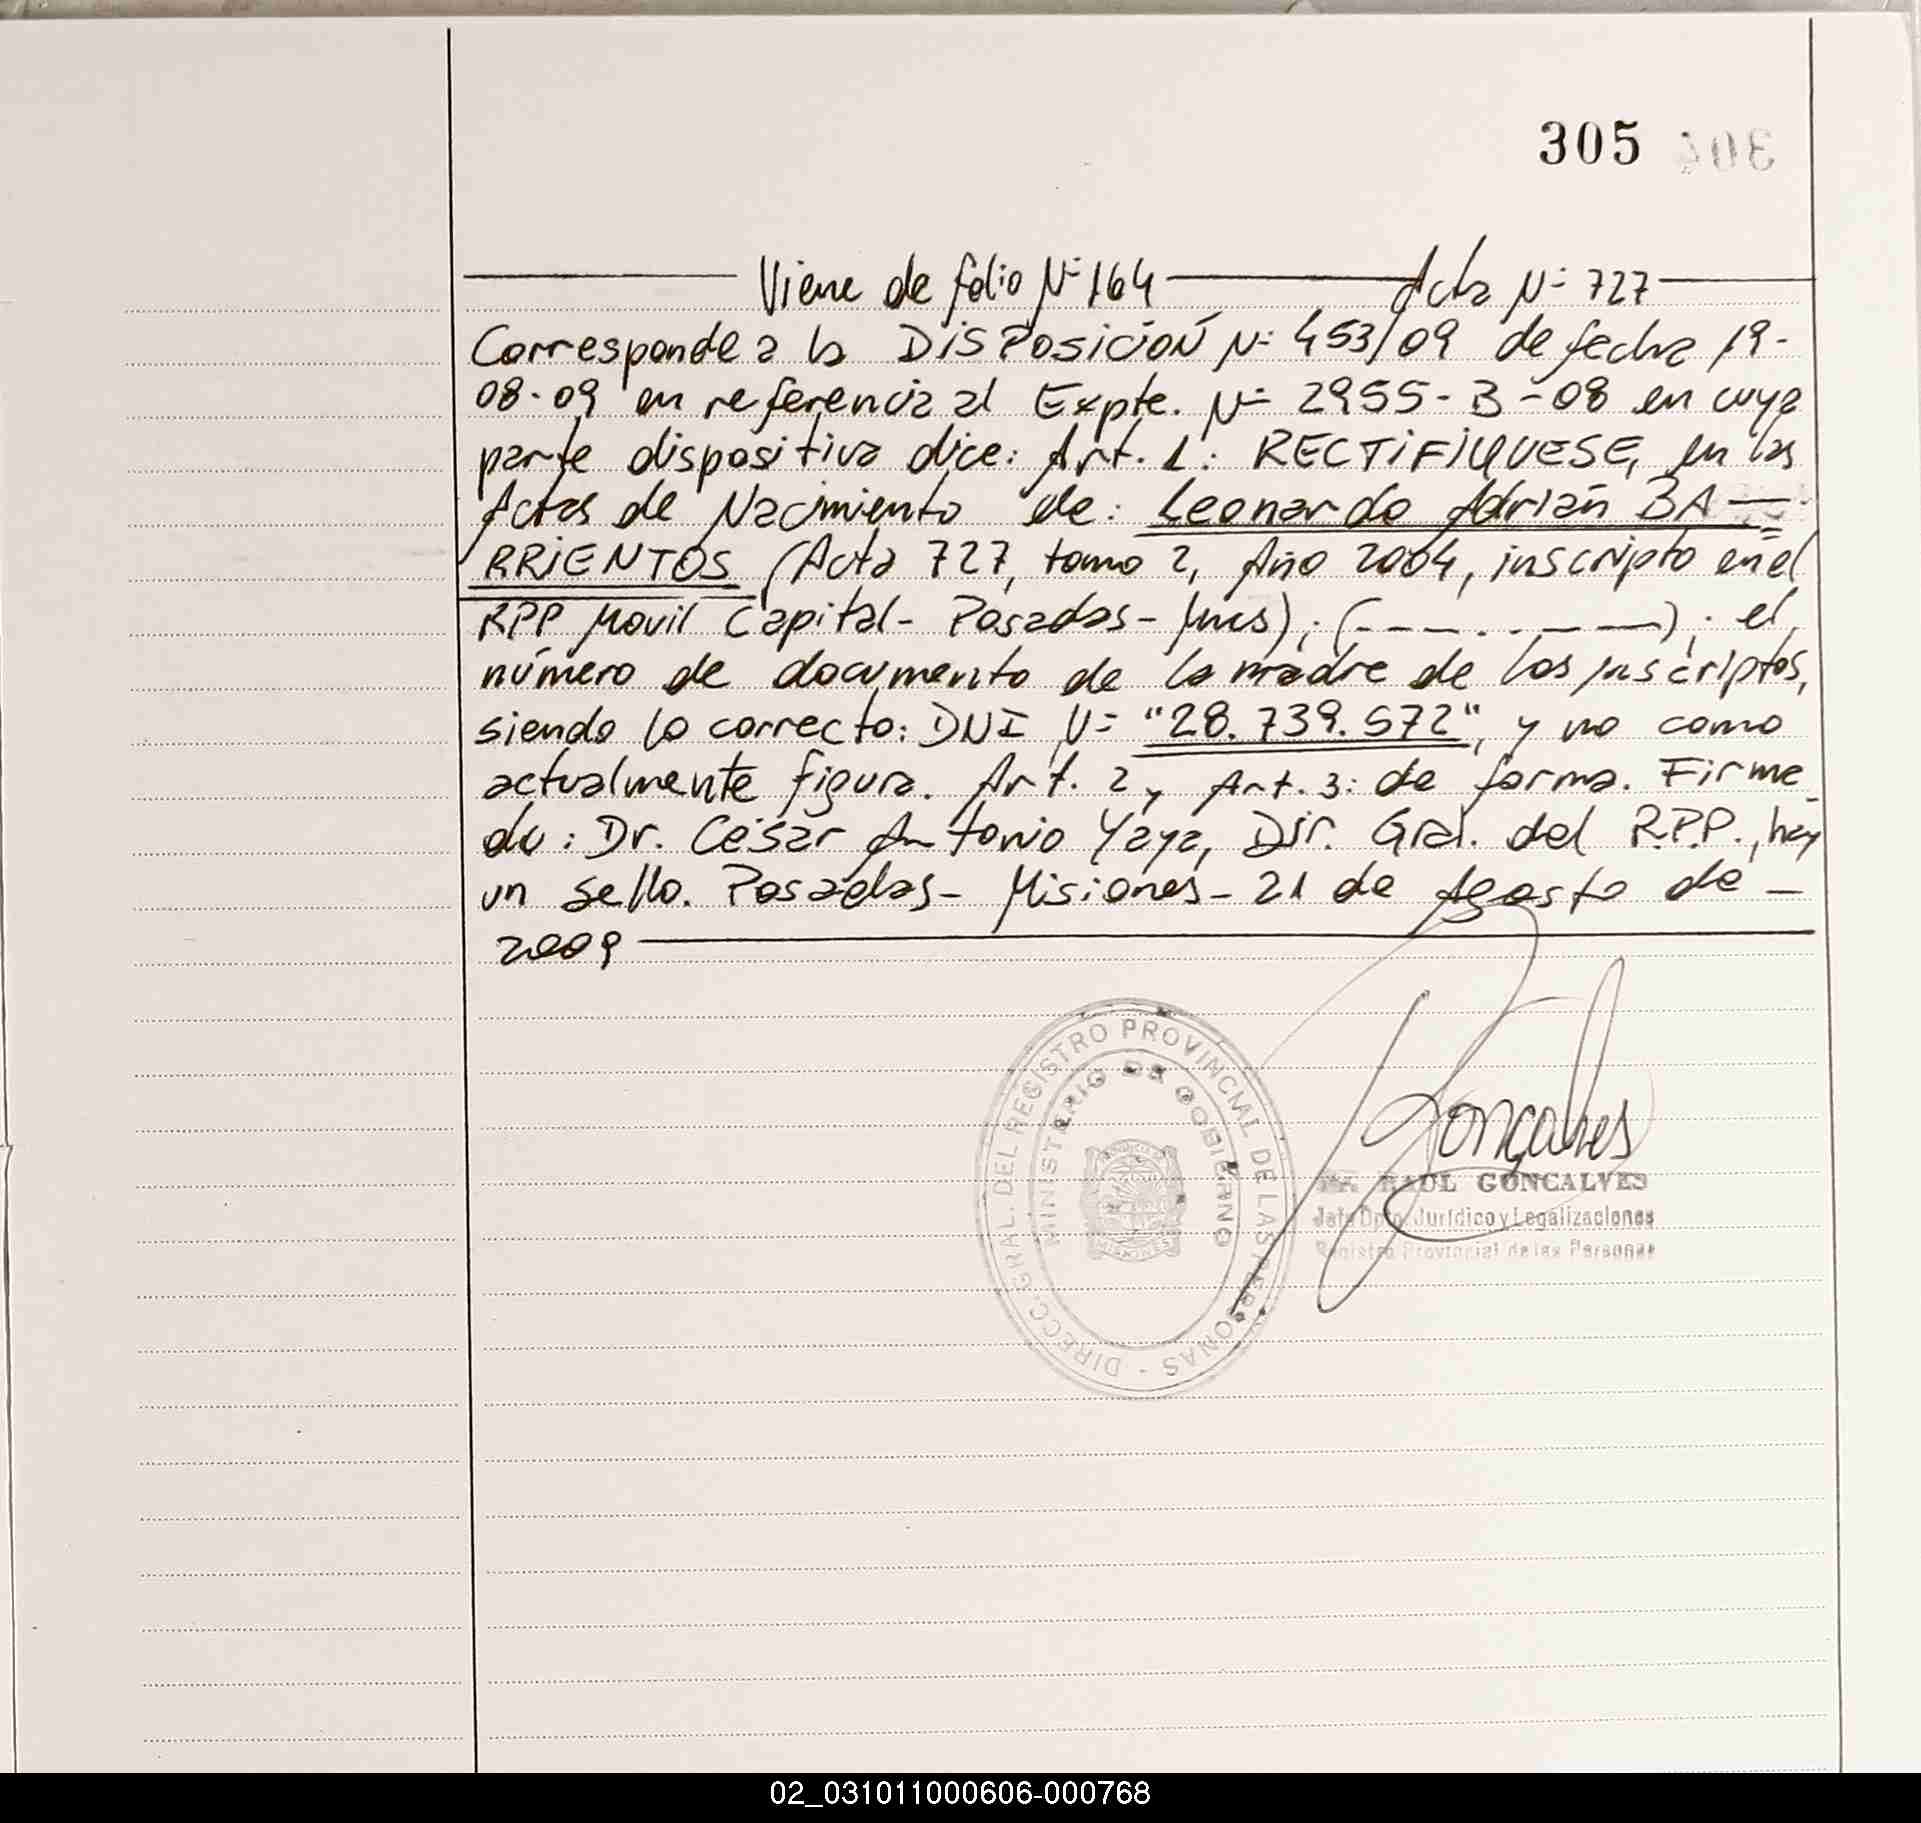 305 304
Viene de folio Nº 164 Acta Nº 727
Corresponde a la DISPOSICIÓN Nº 453/09 de fecha 19-
08-09 en referencia al Expte. Nº 2955-B-08 en cuya
parte dispositiva dice: Art. 1: RECTIFIQUESE, en las
Actas de Nacimiento de: Leonardo Adrián BA-
RRIENTOS (Acta 727, tomo 2, Año 2004, inscripto en el
RPP Movil Capital- Posadas- Mnes); (--------); el
número de documento de la madre de los inscriptos,
siendo lo correcto: DNI Nº "28.739.572", y no como
actualmente figura. Art. 2 y Art. 3: de forma. Firma
do: Dr. César Antonio Yaya, Dir. Gral. del R.P.P., hay
un sello. Posadas- Misiones- 21 de Agosto de -
2009
DIRECC. GRAL. DEL REGISTRO PROVINCIAL DE LAS PERSONAS -
MINISTERIO DE GOBIERNO
MISIONES
Goncalves
RAUL GONCALVES
Jefe Dpto. Jurídico y Legalizaciones
Registro Provincial de las Personas
02_031011000606-000768